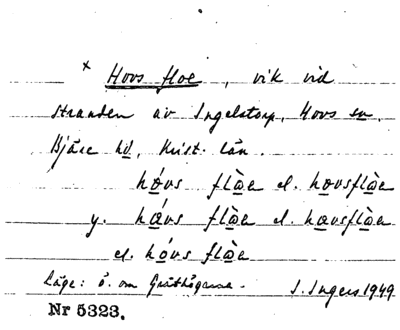 × Hovs floe, vik vid
stranden av Ingelstorp, Hovs sn.
Bjäre hd, Krist. län.
hǫ́vs flǫ̀e el. hovsflǫ̀e
y. hǽvs flǫ̀e el. hævsflǫ̀e
el. hóvs flǫ̀e
Läge: ö. om I. Ingers 1949
Nr 5323.